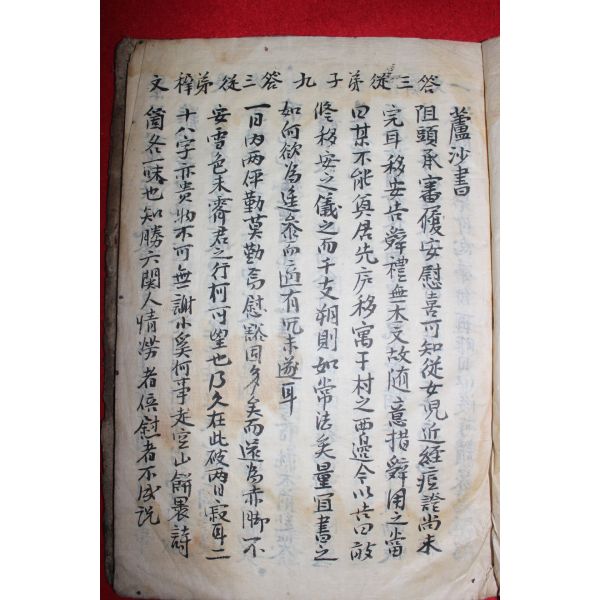 答三從弟子九答三從弟梓文
蘆沙書
阻頭承審履安慰喜可知從女兒近經痘證尚未
完耳移安告辭禮無本文故随意措辭用之當
曰某不能奠居先庐移寓于村之西邊今以吉日敢
修移安之儀之而干支朔則如常法矣量宜書之
如何欲為進參而適有冗未遂耳
一日內兩伻勤莫勤焉慰豁固多矣而還為亦脚不
安雪色未霽君之行何可望也乃久在此破兩日寂耳二
十八字亦貴物不可無謝小奚何事走空山餠裹詩
箇各一味也知勝六関人情勞者倍慰者不成説